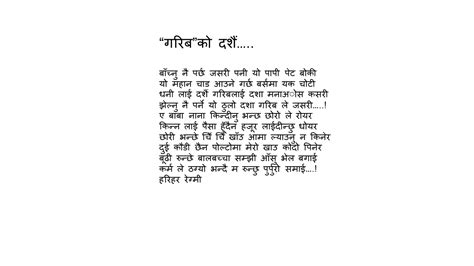 “गरिब”को दशैं…..
बाँच्नु नै पर्छ जसरी पनी यो पापी पेट बोकी
यो महान चाड आउने गर्छ बर्समा यक चोटी
धनी लाई दशैँ गरिबलाई दशा मनाअोस कसरी
झेल्नु नै पर्ने यो ठुलो दशा गरिब ले जसरी…..!
ए बाबा नाना किन्दीनु भन्छ छोरो ले रोयर
किन्न लाई पैसा हुँदैन हजूर लाईदीन्छु धोयर
छोरी भन्छे चिँ चिँ खाँउ आमा ल्याउनु न किनेर
दुई कौडी छैन पोल्टोमा मेरो खाउ कोँदो पिनेर
बूढी रुन्छे बालबच्चा सम्झी आँसू भेल बगाई
कर्म ले ठग्यो भन्दै म रुन्छु पुर्पुरो समाई….!
हरिहर रेग्मी